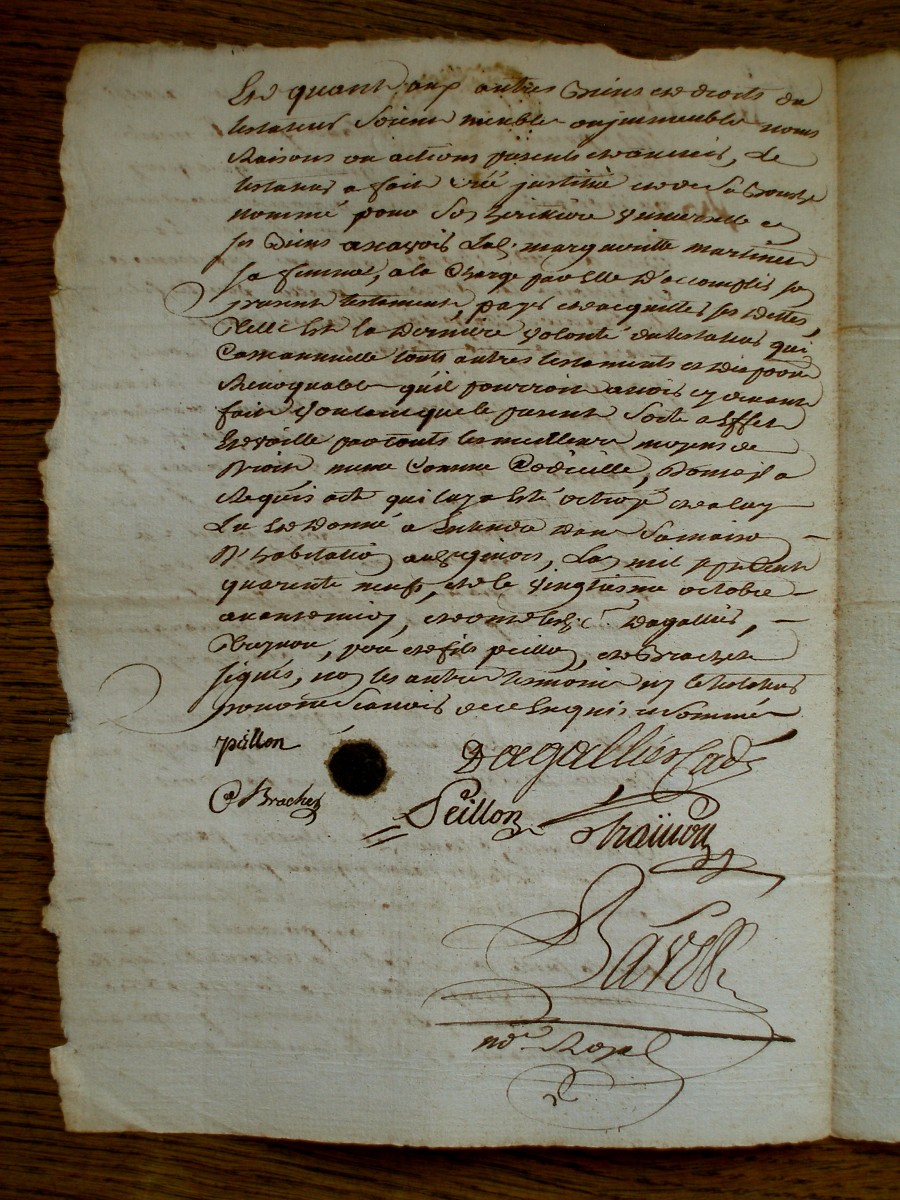 Et quant aux autres biens et droits du
testateur soient meuble ou immeuble noms
Raisons ou actions présents et avenirs, Le
testateur a fait créé institué et de sa bouche
nommé pour son héritière universelle en
ses biens a scavoir marguerite
sa femme, a la charge par Elle D'accomplir son
present testament, payer et acquitter ses dettes,
Telle Est la Derniere volonté du testateur qui
touts autres testaments et
Revoquable qu'il pourroit avoir cy devant
fait voulant que le present sorte a Effet
Et vaille par touts les meilleurs moyens de
Droit meme Comme Codicille, Dont il a
Requis acte qui luy a Eté octroyé et a luy
Lu et Donné a Entendre Dans sa maison
D'habitation, L'an mil sept cent
quarente neuf, et le vingtieme octobre
avant midy, Dagallier,
pere et fils peillon, et Brachet
signés, non les autres temoins ny le testateur
pour ne scavoir de ce Enquis et Sommé
peillon
Dagallier Cad
Brachet
Peillon
Bavoz
no.re Royal